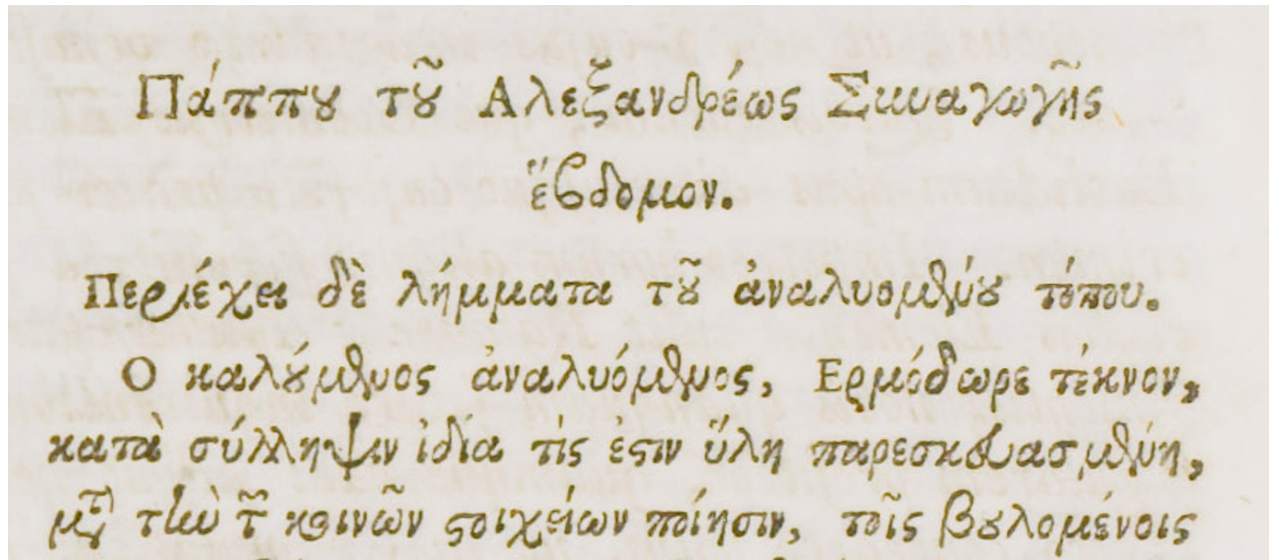 Πάππȣ τȣ͂ Αλεξανδρέως Συναγωγῆς
ἕϐδομον.
Περιέχει δὲ λήμματα τȣ͂ ἀναλυομένȣ τόπου.
Ο καλȣ́μενος ἀναλυόμενος, Ερμόδωρε τέκνον,
κατὰ σύλληψιν ἰδία τίς ἐϛιν ὕλη παρεσκευασμένη,
μετὰ τὴν τῶν κοινῶν ϛοιχείων ποίησιν, τοῖς βȣλομένοις